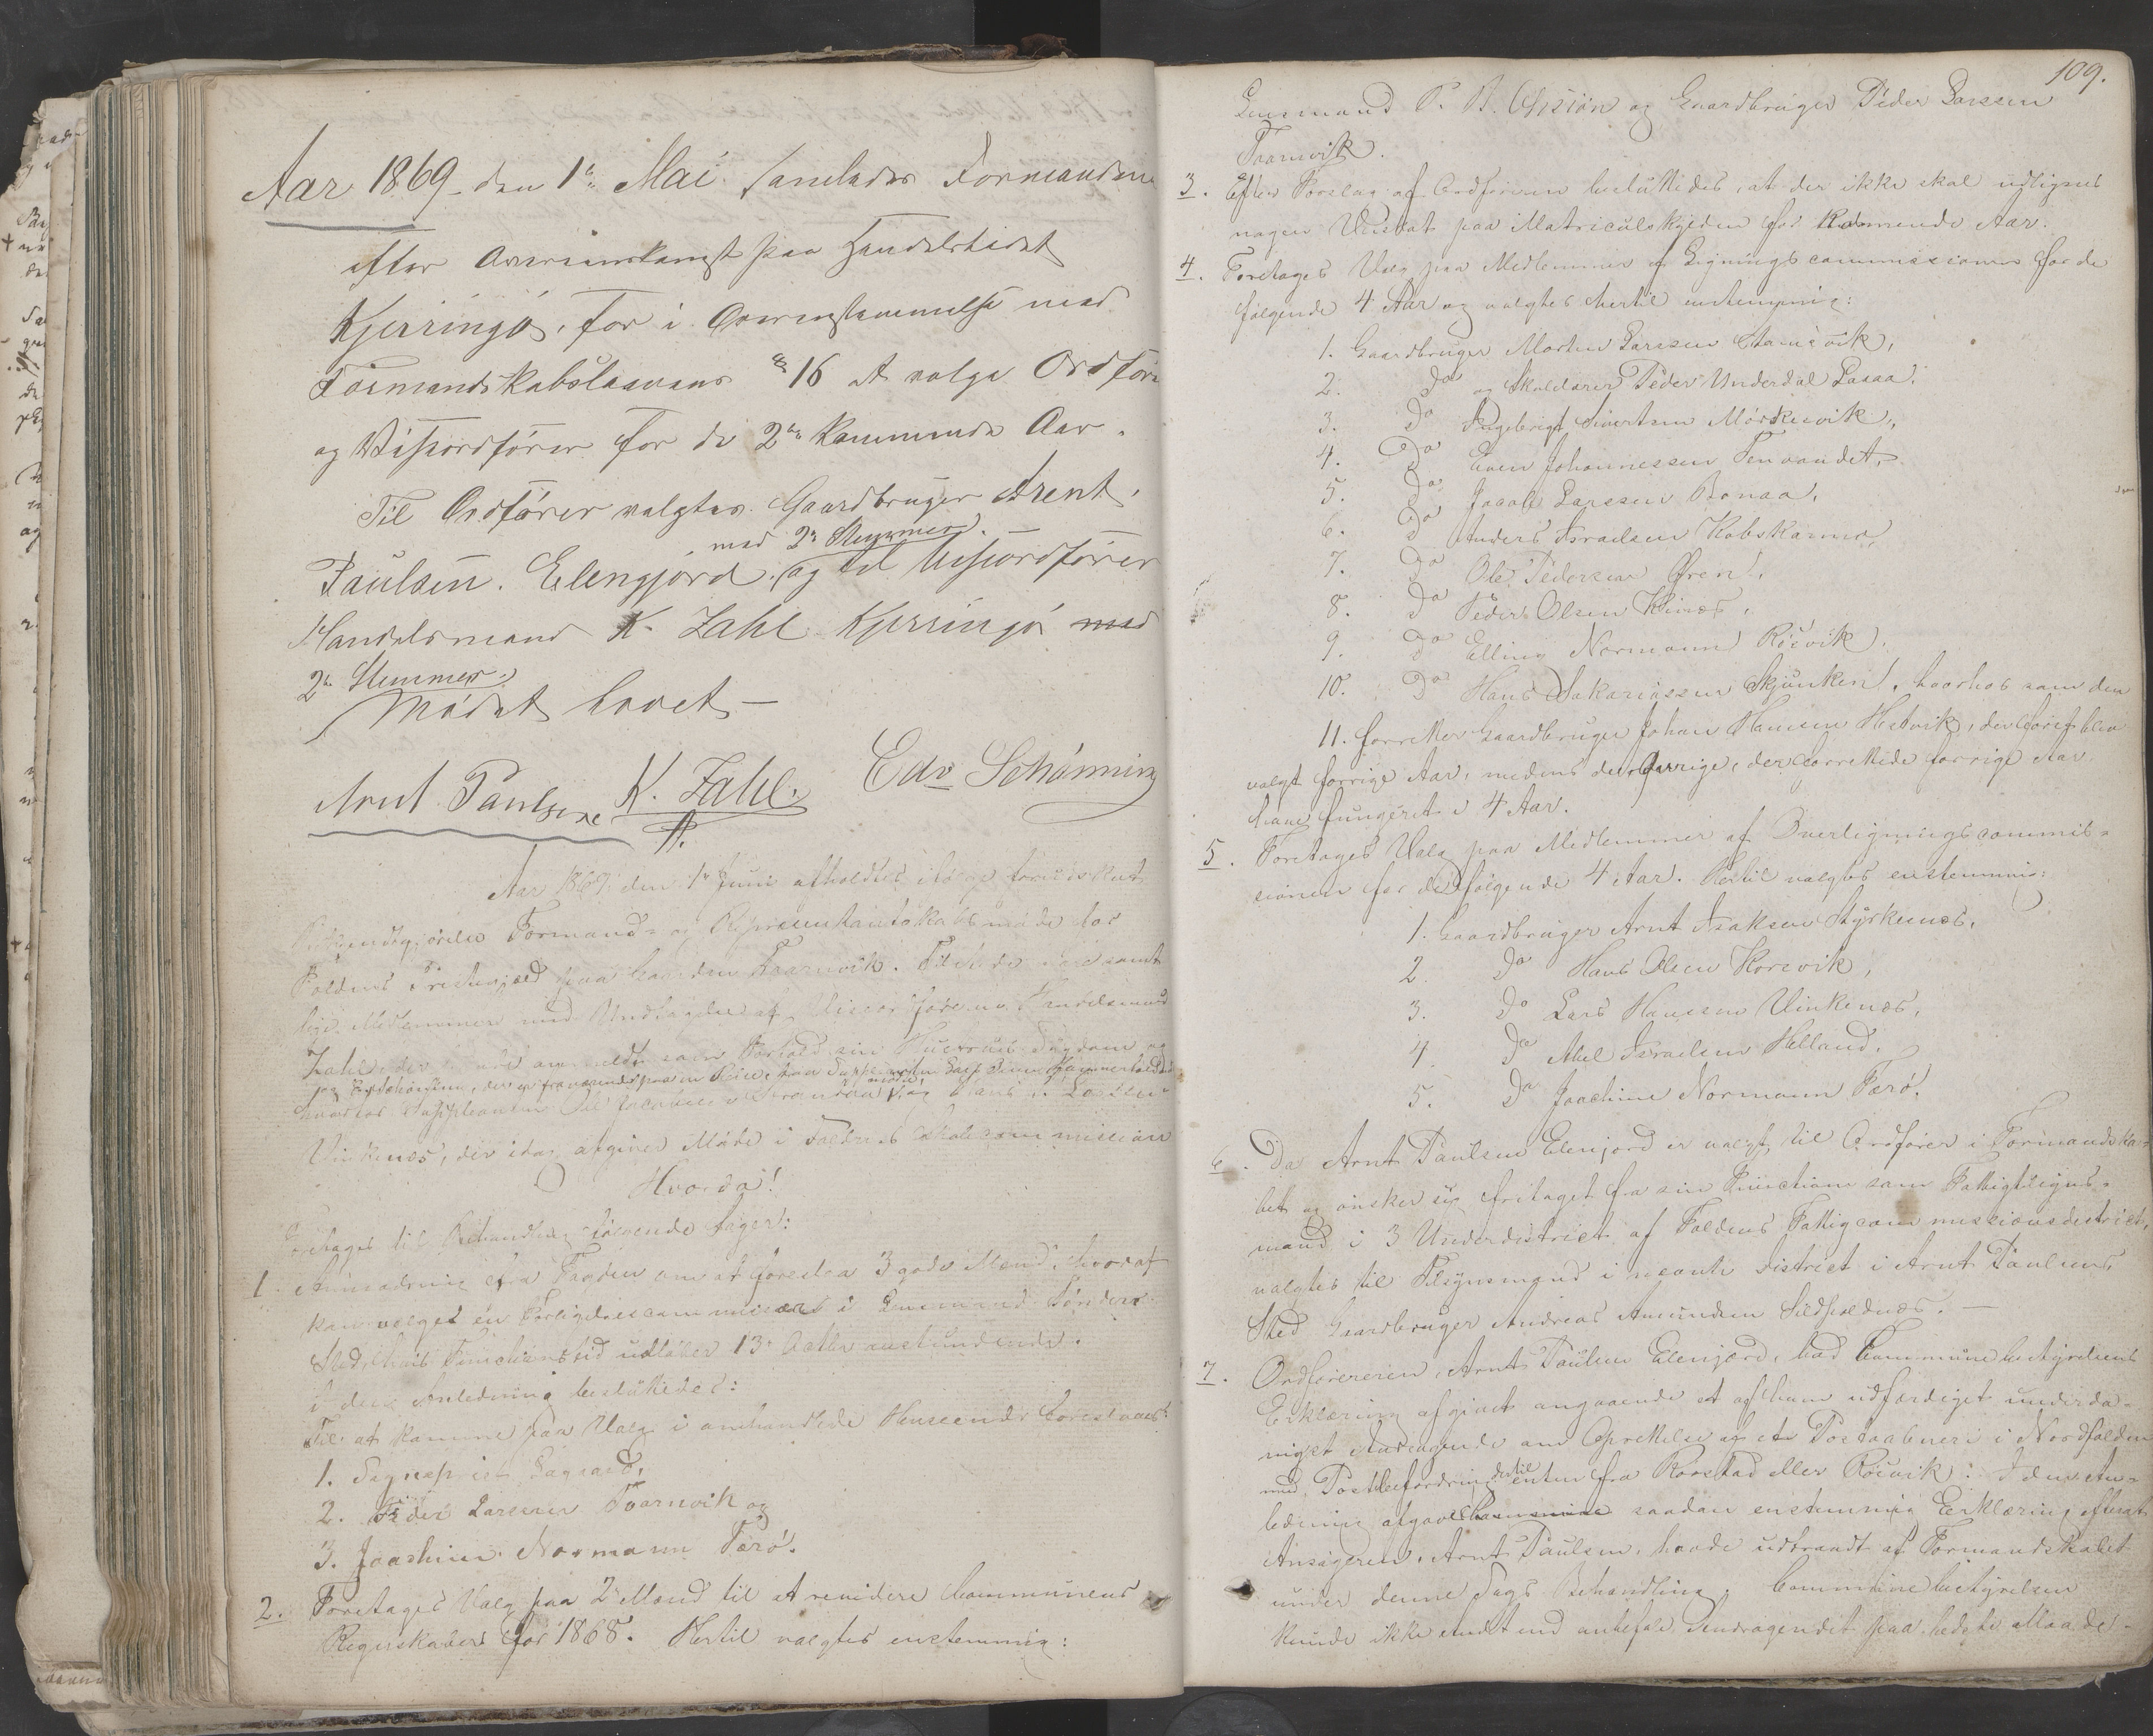 Aar 1869 den 1ste Mai samledes Formændene
efter Overenskomst paa Handelstedet
Kjerringø, for i Overensstemmelse med
Formandskabslovens § 16 at vælge Ordfører
og Viseordfører for de 2de kommende Aar.
Til Ordfører valgtes Gaardbruger Arent
med 2de Stemmer
Paulsen Elengjord, og til Viseordfører
Handelsmand K. Zahl Kjerringø med
2de Stemmer.
Mødet hævet —
Arnt Paulsen K. Zahl. Edv Schønning
Aar 1869 den 1ste Juni afholdtes ifølge forudskut
Bekjendtgjørelse Formand- og Repræsentantskabsmøde for
Foldens Præstegjæld paa Gaarden Taarnvik. Tilstede vare samt-
lige Medlemmer med Undtagelse af Viceordføreren Handelsmand
Zahl, der havde anmeldt som Forfald sin Hustrues Sygdom og
Vinkenæs, der idag afgiver Møde i Foldens Skolecommission
Hvorda!
Foretages til Behandling følgende Sager:
1. Anmodning fra Fogden om at foreslaa 3 gode Mænd, hvoraf
kan vælges en Forligelsescommissær i Lensmand
Sted, hvis Functionstid udløber 13de October anstundende.
I den Anledning besluttedes:
Til at komme paa Valg i omhandlede Henseende foreslaaes:
1.
2. Peder Larssen Taarnvik og
3. Joachim Normann Færø.
2. Foretages Valg paa 2de Mænd til at revidere Communens
Regnskaber for 1868. Hertil valgtes enstemmig:
109.
Lensmand P. B. og Gaardbruger Peder Larssen
Taarnvik.
3. Efter Forslag af Ordføreren besluttedes, at der ikke skal udlignes
nogen Udskat paa Matriculskylden for kommende Aar.
4. Foretages Valg paa Medlemmer af Ligningscommissionen for de
følgende 4 Aar og valgtes hertil enstemmig:
1. Gaardbruger Morten Larssen Stamsvik,
2. Do og Skolelærer Peder Underdal Laxaa,
3. Do Ingebrigt Sivertsen Mørsvik,
4. Do Even Johannessen Tennvandet,
5. Do Jacob Larssen Bonaa,
6. Do Anders Israelsen Kobskarmo,
7. Do Ole Pedersen Øren,
8. Do Peder Olsen Kinæs,
9. Do Elling Normann Røsvik,
10. Do Hans Sakariassen Skjunken, hvorhos som den
11. forretter Gaardbruger Johan Hansen Hestvik, der forof blev
valgt forrige Aar, medens de øvrige, der forrettede forrige Aar
have fungeret i 4 Aar.
5. Foretages Valg paa Medlemmer af Overligningscommis-
sionen for de følgende 4 Aar. Hertil valgtes enstemmig:
1. Gaardbruger Arnt Isaksen Styrkesnæs,
2. Do Hans Olsen Korsvik,
3. Do Lars Hanssen Vinkenæs,
4. Do Abel Israelsen Helland,
5. Do Joachim Normann Færø.
6. Da Arnt Paulsen Elenjord er valgt til Ordfører i Formandska-
bet og ønsker sig fritaget fra sin Function som Fattigtilsyns-
mand i 3 Underdistrict af Foldens Fattigcommissionsdistrict,
valgtes til Tilsynsmand i nævnte District i Arnt Paulsens
Sted Gaardbruger Andreas Amundsen Sildholdnæs. —
7. Ordføreren, Arnt Paulsen Elenjord, bad Communebestyrelsens
Erklæring afgivet angaaende et af ham udfærdiget underda-
nigst Andragende om Oprettelse af et Postaabneri i Nordfolden
dertil
med Postbefordring enten fra Rørstad eller Røsvik: I den An-
ledning afgaves Communens saadan enstemmig Erklæring efterat
Ansøgeren, Arnt Paulsen, havde udtraadt af Formandskabet
under denne Sags Behandling: Communebestyrelsen
kunde ikke andet end anbefale Andragendet paa bedste Maade.